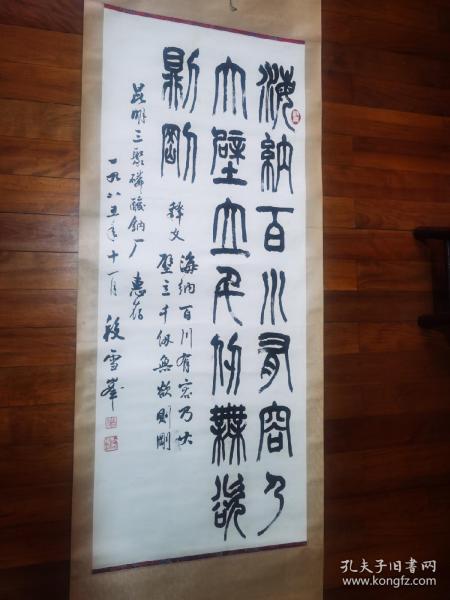 海納百川有容乃
大壁立千仞無欲
則剛
释文
海纳百川有容乃大
壁立千仞無欲则剛
昆明三聚磷酸鈉厂 惠存
一九八五年十一月 段雪峯
孔夫子旧书网
www.kongfz.com